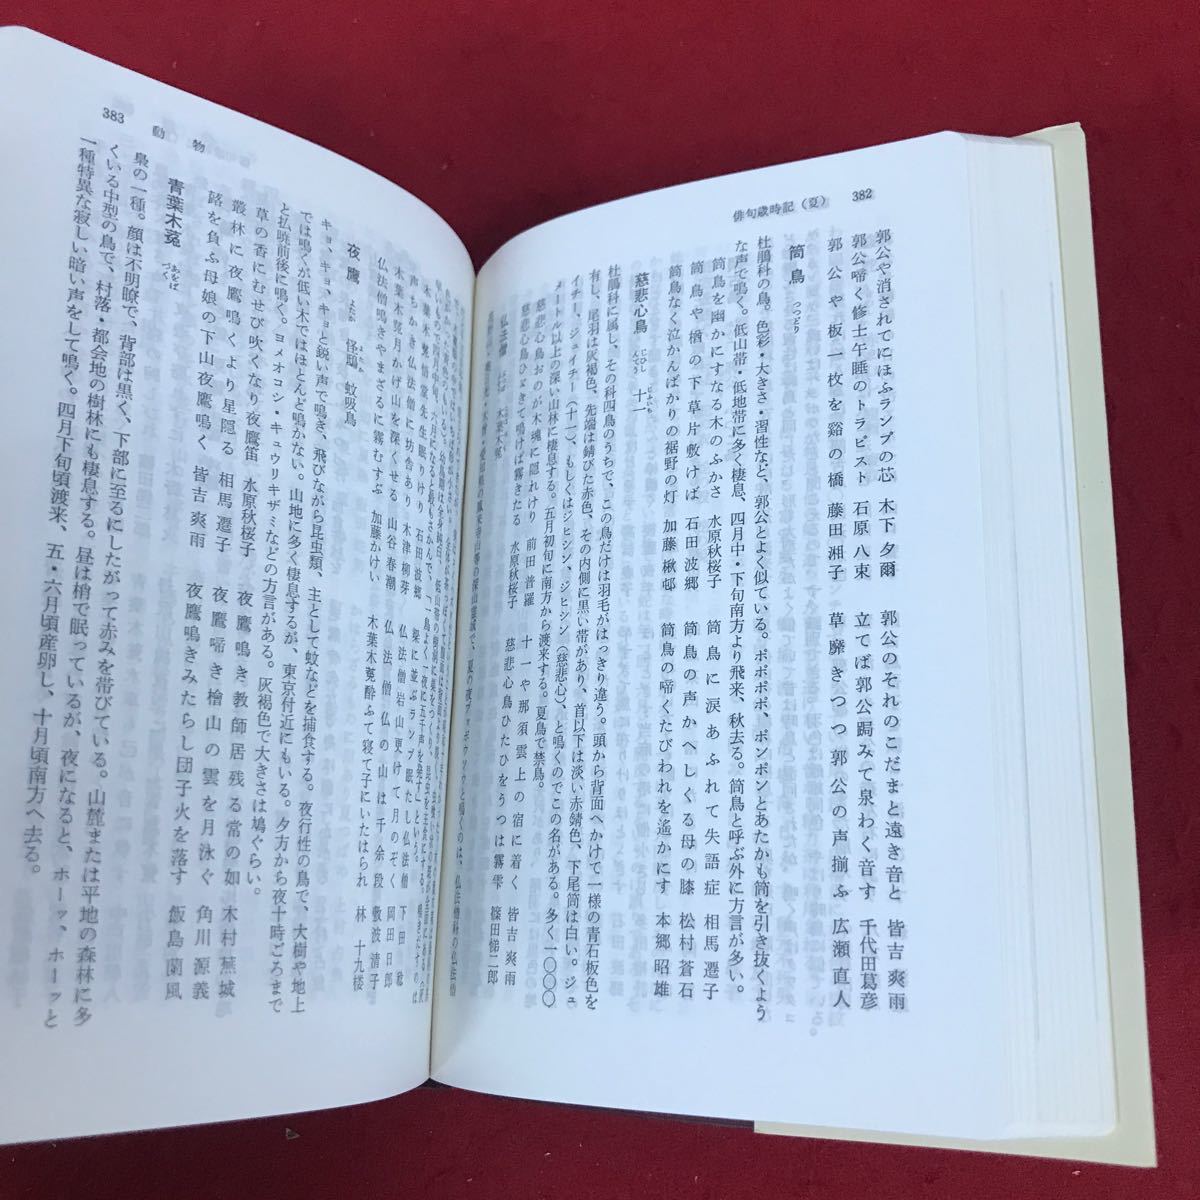 382
俳句歳時記（夏）
郭公や消されてにほふランプの芯　木下夕爾
郭公のそれのこだまと遠き音と　皆吉爽雨
郭公啼く修士午睡のトラピスト　石原八束
立てば郭公跼みて泉わく音す　千代田葛彦
郭公や板一枚を谿の橋　藤田湘子
草靡きつつ郭公の声揃ふ　広瀬直人
筒鳥　つつどり
杜鵑科の鳥。色彩・大きさ・習性など、郭公とよく似ている。ポポポポ、ポンポンとあたかも筒を引き抜くよう
な声で鳴く。低山帯・低地帯に多く棲息、四月中・下旬南方より飛来、秋去る。筒鳥と呼ぶ外に方言が多い。
筒鳥を幽かにすなる木のふかさ　水原秋桜子
筒鳥に涙あふれて失語症　相馬遷子
筒鳥や楢の下草片敷けば　石田波郷
筒鳥の声かへしくる母の膝　松村蒼石
筒鳥なく泣かんばかりの裾野の灯　加藤楸邨
筒鳥の啼くたびわれを遙かにす　本郷昭雄
慈悲心鳥　じひしんてう　十一　じふいち
杜鵑科に属し、その科四鳥のうちで、この鳥だけは羽毛がはっきり違う。頭から背面へかけて一様の青石板色を
有し、尾羽は灰褐色、先端は錆びた赤色、その内側に黒い帯があり、首以下は淡い赤錆色、下尾筒は白い。ジュ
イチー、ジュイチー（十一）、もしくはジヒシン、ジヒシン（慈悲心）、と鳴くのでこの名がある。多く一〇〇〇
メートル以上の深い山林に棲息する。五月初旬に南方から渡来する。夏鳥で禁鳥。
慈悲心鳥おのが木魂に隠れけり　前田普羅
十一や那須雲上の宿に着く　皆吉爽雨
慈悲心鳥ひゞきて鳴けば霧きたる　水原秋桜子
慈悲心鳥ひたひをうつは霧雫　篠田悌二郎
仏法僧　木葉木菟
383
動物
声ちかき仏法僧に坊舎あり　木津柳芽
仏法僧岩山更けて月のぞく　岡田日郎
木葉木菟月かげ山を深くせる　山谷春潮
仏法僧仏の山は千余段　敷波清子
仏法僧鳴きやまざるに霧むすぶ　加藤かけい
木葉木菟酔ふて寝て子にいたはられ　林十九楼
夜鷹　よたか　怪鴟　よたか　蚊吸鳥
キョ、キョ、キョと鋭い声で鳴き、飛びながら昆虫類、主として蚊などを捕食する。夜行性の鳥で、大樹や地上
では鳴くが低い木ではほとんど鳴かない。山地に多く棲息するが、東京付近にもいる。夕方から夜十時ごろまで
と払暁前後に鳴く。ヨメオコシ・キュウリキザミなどの方言がある。灰褐色で大きさは鳩ぐらい。
草の香にむせび吹くなり夜鷹笛　水原秋桜子
夜鷹鳴き教師居残る常の如　木村蕪城
叢林に夜鷹鳴くより星隠る　相馬遷子
夜鷹啼き檜山の雲を月泳ぐ　角川源義
蕗を負ふ母娘の下山夜鷹鳴く　皆吉爽雨
夜鷹鳴きみたらし団子火を落す　飯島蘭風
青葉木菟　あをばづく
梟の一種。顔は不明瞭で、背部は黒く、下部に至るにしたがって赤みを帯びている。山麓または平地の森林に多
くいる中型の鳥で、村落・都会地の樹林にも棲息する。昼は梢で眠っているが、夜になると、ホーッ、ホーッと
一種特異な寂しい暗い声をして鳴く。四月下旬頃渡来、五・六月頃産卵し、十月頃南方へ去る。